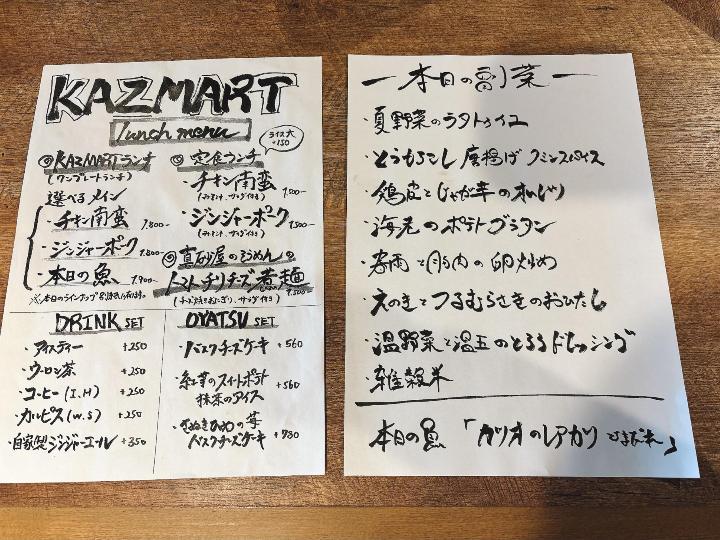 KAZMART
lunch menu
ライス大
+150
◎KAZMARTランチ
(ワンプレートランチ)
選べるメイン
・チキン南蛮 1.800-
・ジンジャーポーク 1.800-
・本日の魚 1.900-
◎定食ランチ
・チキン南蛮 1.500-
(みそ汁、サラダ付き)
・ジンジャーポーク 1.500-
(みそ汁、サラダ付き)
◎真砂屋のそうめんの
トマトチリチーズ煮麺
(チーズ焼きおにぎり、サラダ付き) 1.500-
DRINK SET
・アイスティー +250
・ウーロン茶 +250
・コーヒー(I.H) +250
・カルピス(W.S) +250
・自家製ジンジャーエール +350
OYATSU SET
・バスクチーズケーキ +560
・紅芋のスイートポテト
抹茶のアイス +560
・さぬきひめの苺
バスクチーズケーキ +780
ー本日の副菜ー
・夏野菜のラタトゥイユ
・とうもろこし唐揚げ クミンスパイス
・鶏皮とじゃが芋のオイル
・海老のポテトグラタン
・春雨と豚肉の卵炒め
・えのきとつるむらさきのおひたし
・温野菜と温玉のとろろドレッシング
・雑穀米
本日の魚「カツオのレアカツ